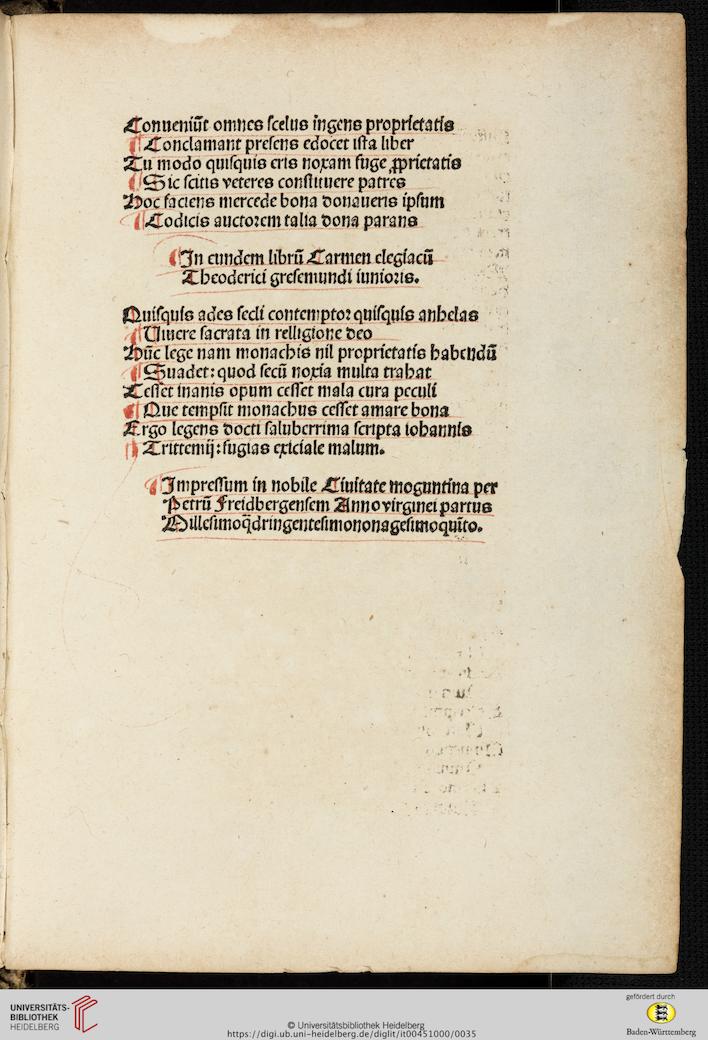 Conueniūt omnes scelus ingens proprietatis
Conclamant presens edocet ista liber
Tu modo quisquis eris noxam fuge ꝓprietatis
Sic scitis veteres constituere patres
Hoc faciens mercede bona donaueris ipsum
Codicis auctorem talia dona parans
In eundem librū Carmen elegiacū
Theoderici gresemundi iunioris.
Quisquis ades secli contemptor quisquis anhelas
Viuere sacrata in relligione deo
Hūc lege nam monachis nil proprietatis habendū
Suadet: quod secū noxia multa trahat
Cesset inanis opum cesset mala cura peculi
Que tempsit monachus cesset amare bona
Ergo legens docti saluberrima scripta iohannis
Trittemij: fugias exiciale malum.
Impressum in nobile Ciuitate moguntina per
Petrū Freidbergensem Anno virginei partus
Millesimoq̄dringentesimononagesimoquīto.
UNIVERSITÄTS-
BIBLIOTHEK
HEIDELBERG
© Universitätsbibliothek Heidelberg
https://digi.ub.uni-heidelberg.de/diglit/it00451000/0035
gefördert durch
Baden-Württemberg